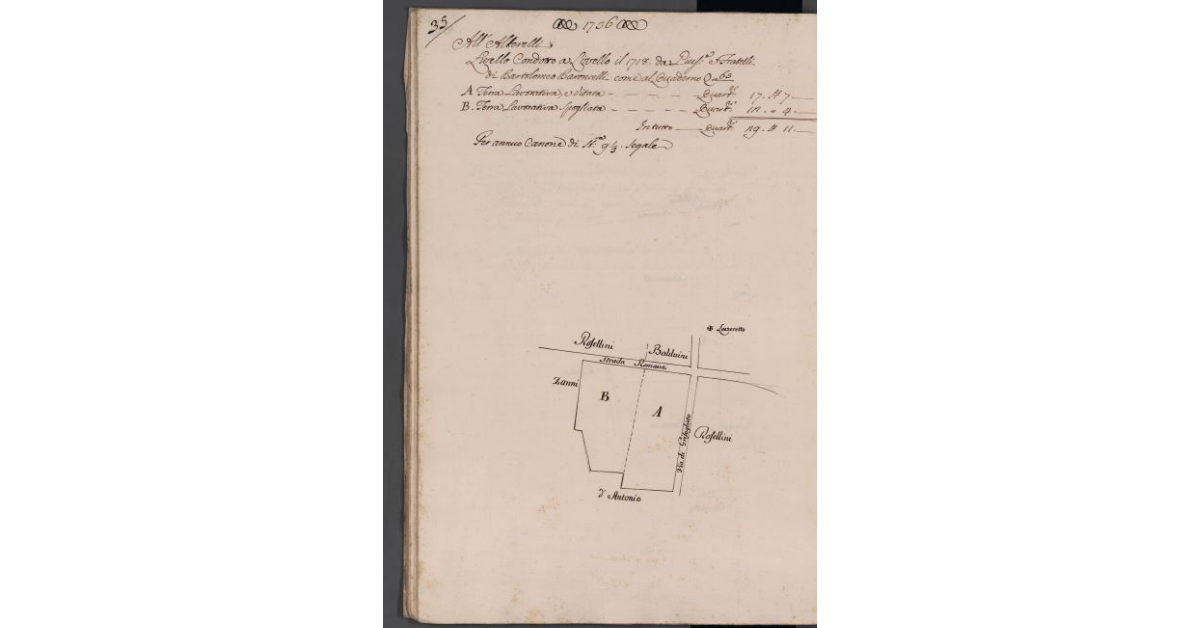 35
1736
All' Altorelli
Livello Condotto a Livello il 1718. da Fratelli
di Bartolomeo Baroncelli come al Quaderno Q 63
A Terra Lavorativa, e Vitata - - - - Quart. 17. 7
B. Terra Lavorativa Spogliata - - - - Quart. 4
In tutto Quart. 11
Per annuo Canone di N. Segale
Lazeretto
Rosellini
Balduini
Strada Romana
Zanni
B
A
Via di
Rosellini
d'Antonio